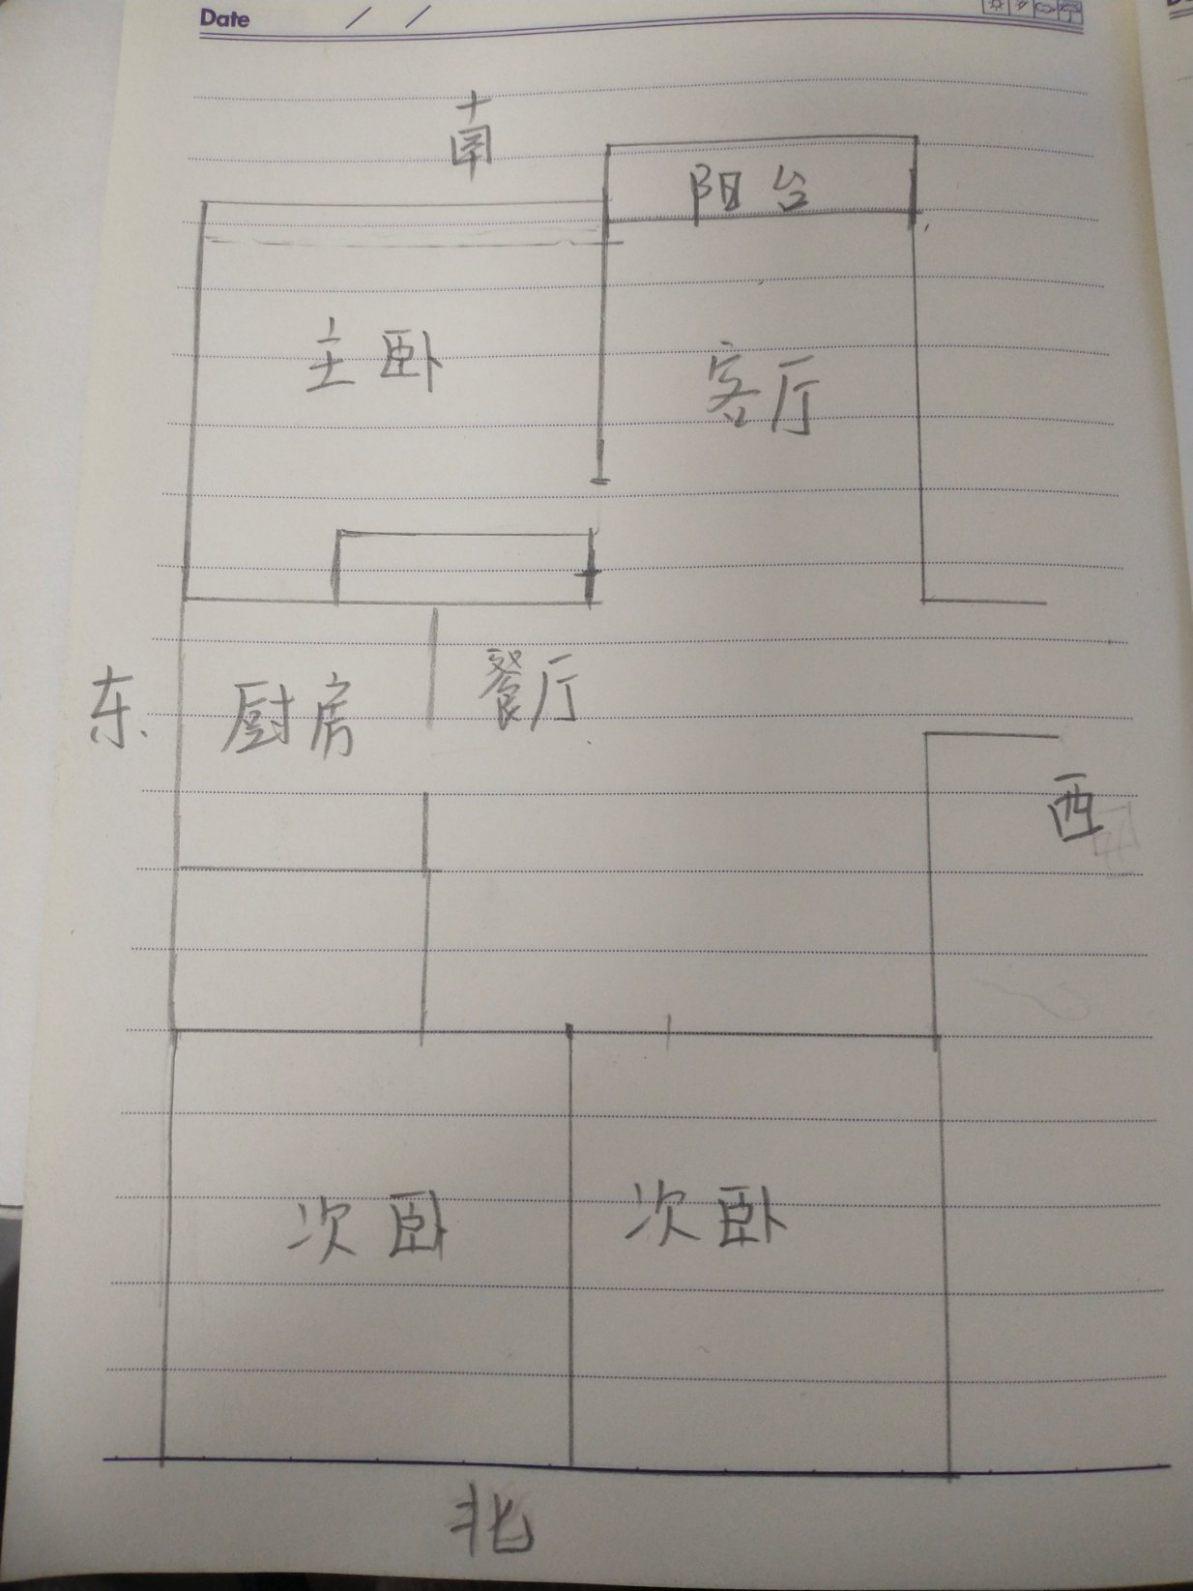 Date / /
南
阳台
主卧
客厅
东
厨房
餐厅
西
次卧
次卧
北